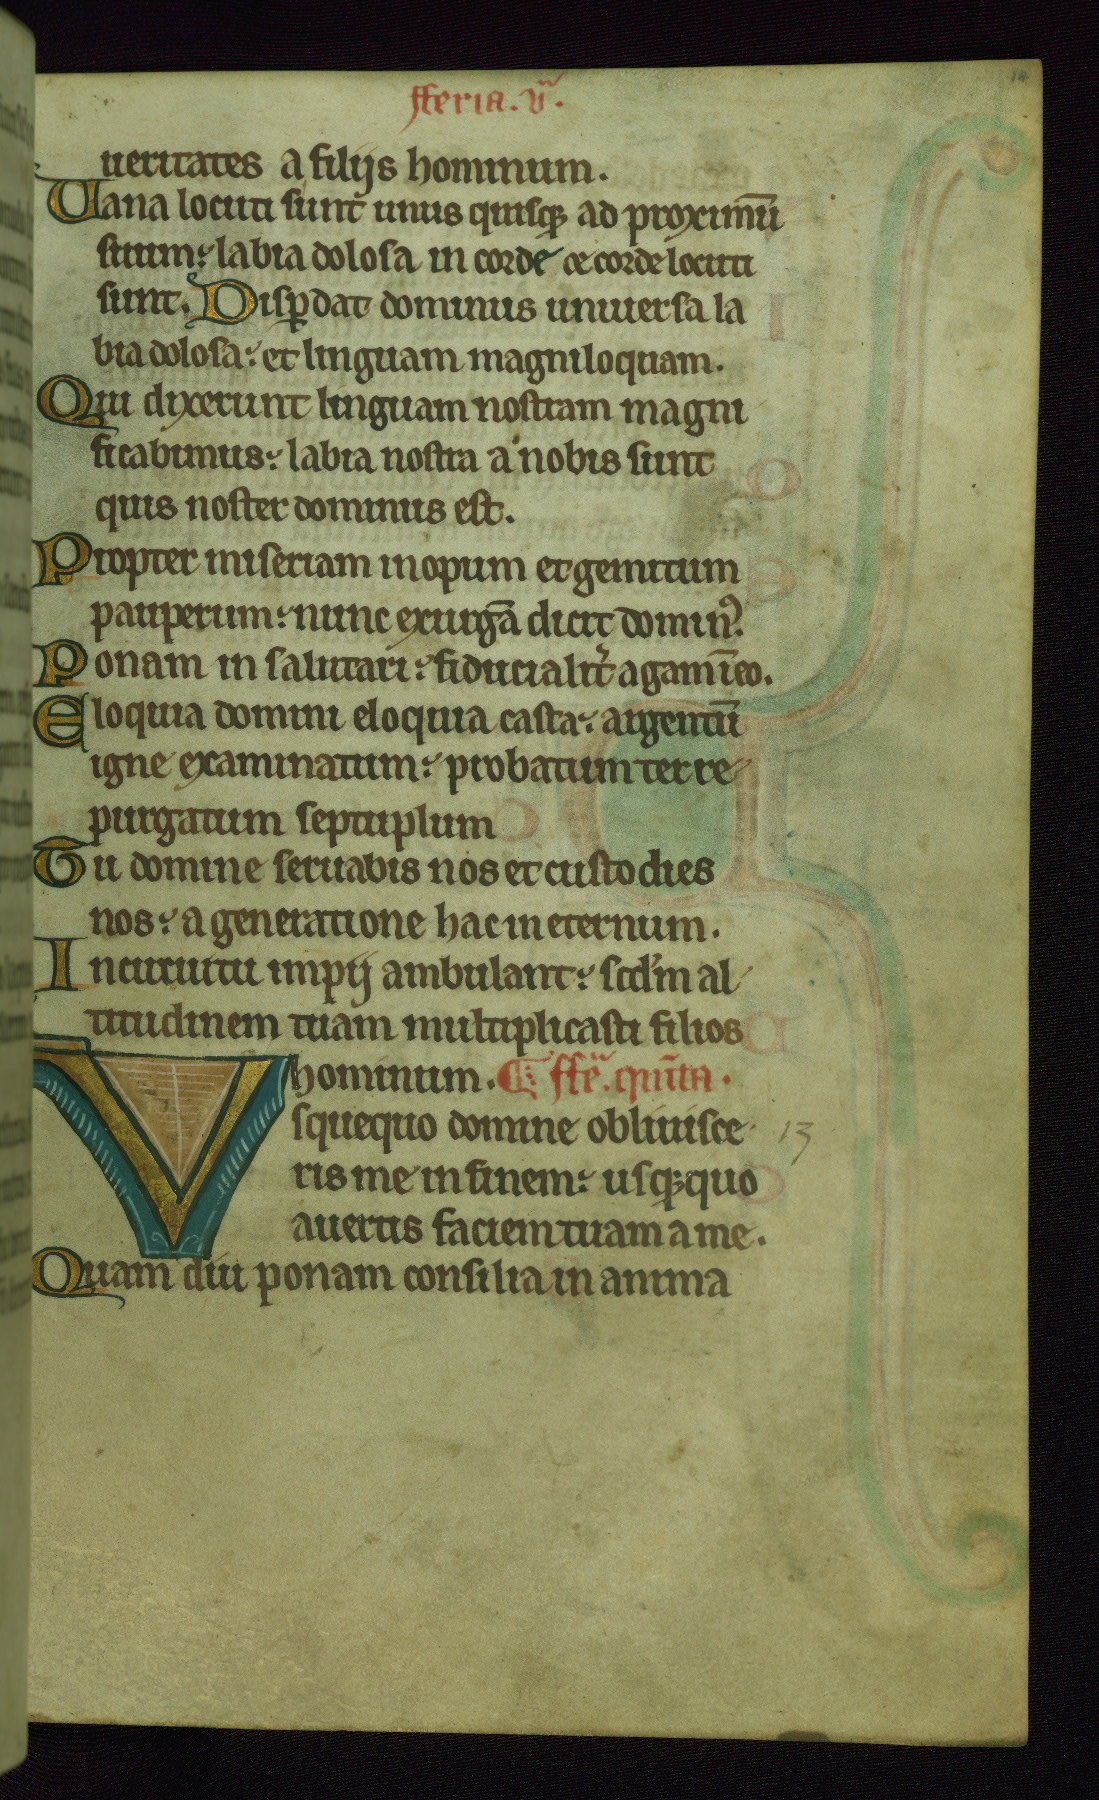 fferia. v͞.
ueritates a filijs hominum.
Uana locuti sunt unus quisqꝫ ad proximū
suum: labia dolosa in corde œ corde locuti
sunt. Disꝑdat dominus uniuersa la
bia dolosa: et linguam magniloquam.
Qui dixerunt linguam nostram magni
ficabimus: labia nostra a nobis sunt
quis noster dominus est.
Propter miseriam inopum et gemitum
pauperum: nunc exurgā dicit dominꝰ.
Ponam in salutari: fiducialit̓ agam ī eo.
Eloquia domini eloquia casta: argentū
igne examinatum: probatum terre
purgatum septuplum
Tu domine seruabis nos et custodies
nos: a generatione hac in eternum.
In curcuitu impij ambulant: scd̓m al
titudinem tuam multiplicasti filios
hominum. ff͞e. qui͞ta.
Vsquequo domine obliuisce 13
ris me in finem: usqꝫquo
auertis faciem tuam a me.
Quam diu ponam consilia in anima